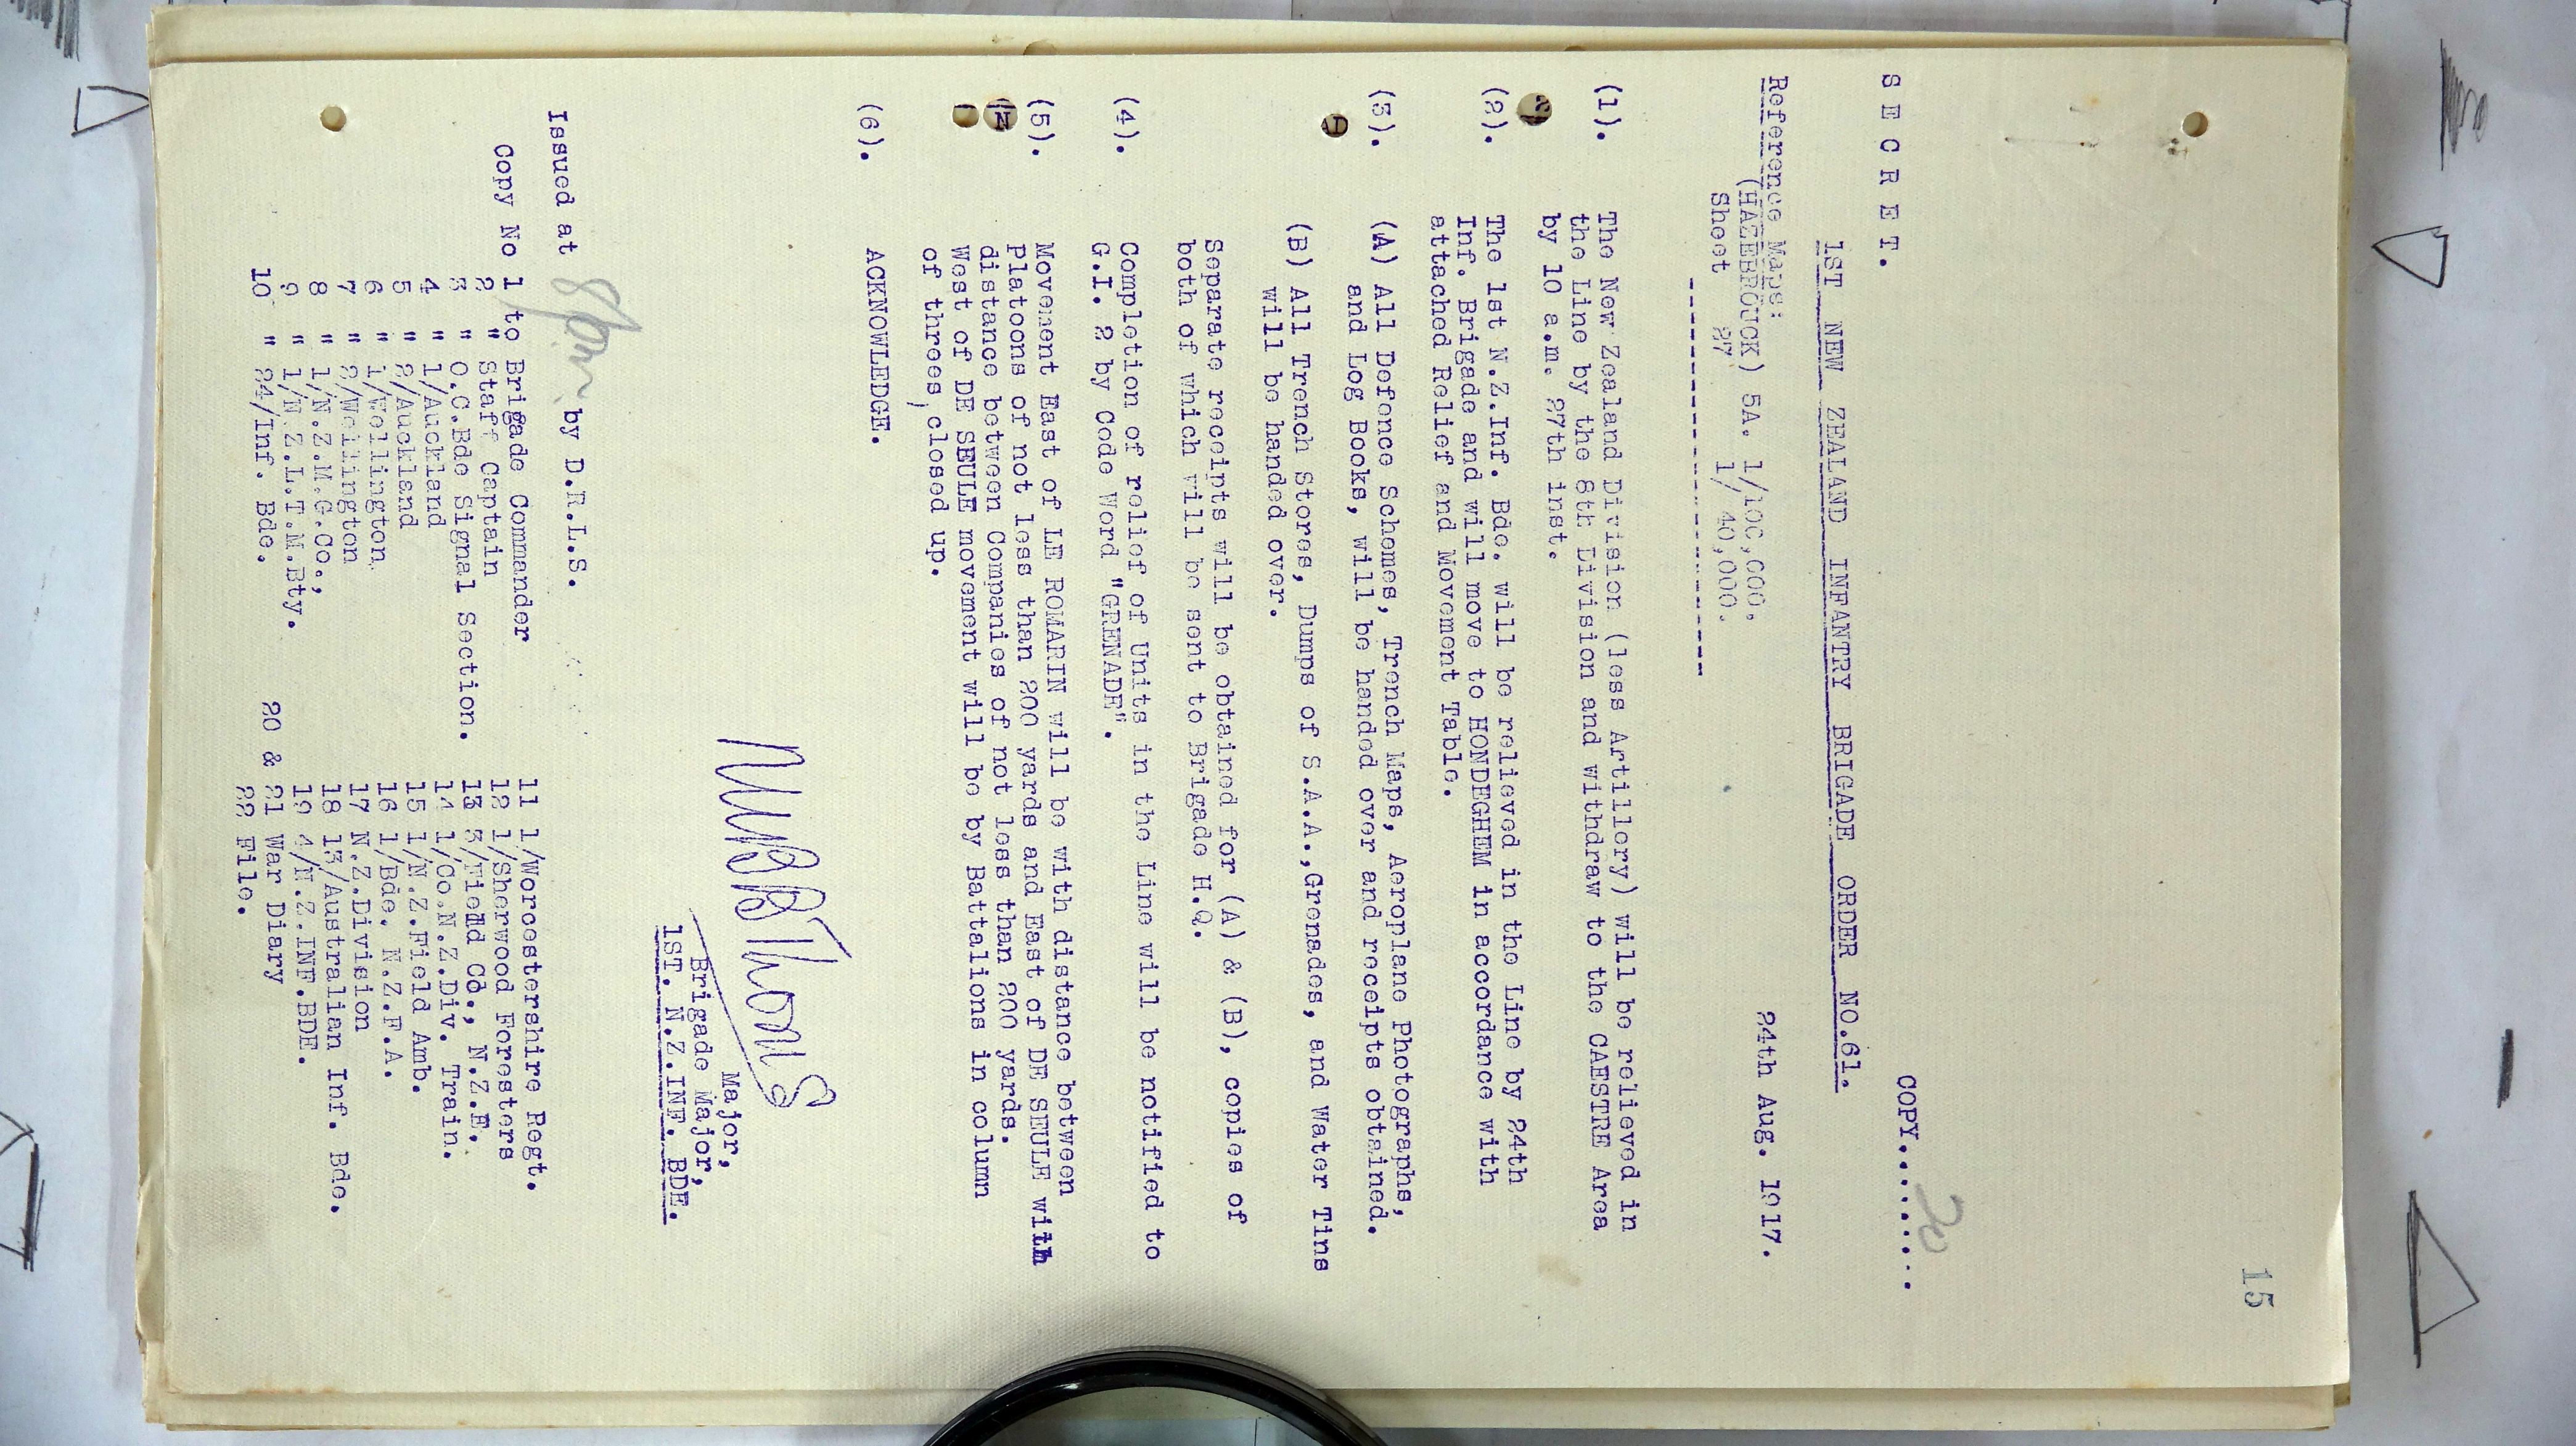 15
S E C R E T.
COPY..........
20
1ST NEW ZEALAND INFANTRY BRIGADE ORDER NO.61.
Reference Maps:
(HAZEBROUCK) 5A. 1/100,000.
24th Aug. 1917.
Sheet 27 1/ 40,000.
(1). The New Zealand Division (less Artillery) will be relieved in
the Line by the 8th Division and withdraw to the CAESTRE Area
by 10 a.m. 27th inst.
(2). The 1st N.Z.Inf. Bde. will be relieved in the Line by 24th
Inf. Brigade and will move to HONDEGHEM in accordance with
attached Relief and Movement Table.
(3). (A) All Defence Schemes, Trench Maps, Aeroplane Photographs,
and Log Books, will be handed over and receipts obtained.
(B) All Trench Stores, Dumps of S.A.A.,Grenades, and Water Tins
will be handed over.
Separate receipts will be obtained for (A) & (B), copies of
both of which will be sent to Brigade H.Q.
(4). Completion of relief of Units in the Line will be notified to
G.I. 2 by Code Word "GRENADE".
(5). Movement East of LE ROMARIN will be with distance between
Platoons of not less than 200 yards and East of DE SEULE with
distance between Companies of not less than 200 yards.
West of DE SEULE movement will be by Battalions in column
of threes, closed up.
(6). ACKNOWLEDGE.
Major,
Brigade Major,
1ST. N.Z.INF. BDE.
Issued at 8pm by D.R.L.S.
Copy No 1 to Brigade Commander 11 1/Worcestershire Regt.
2 " Staff Captain 12 1/Sherwood Foresters
3 " O.C.Bde Signal Section. 13 3/Field Co., N.Z.E.
4 " 1/Auckland 14 1/Co.N.Z.Div. Train.
5 " 2/Auckland 15 1/N.Z.Field Amb.
6 " 1/Wellington 16 1/Bde. N.Z.F.A.
7 " 2/Wellington 17 N.Z.Division
8 " 1/N.Z.M.G.Co., 18 13/Australian Inf. Bde.
9 " 1/N.Z.L.T.M.Bty. 19 4/N.Z.INF.BDE.
10 " 24/Inf. Bde. 20 & 21 War Diary
22 File.